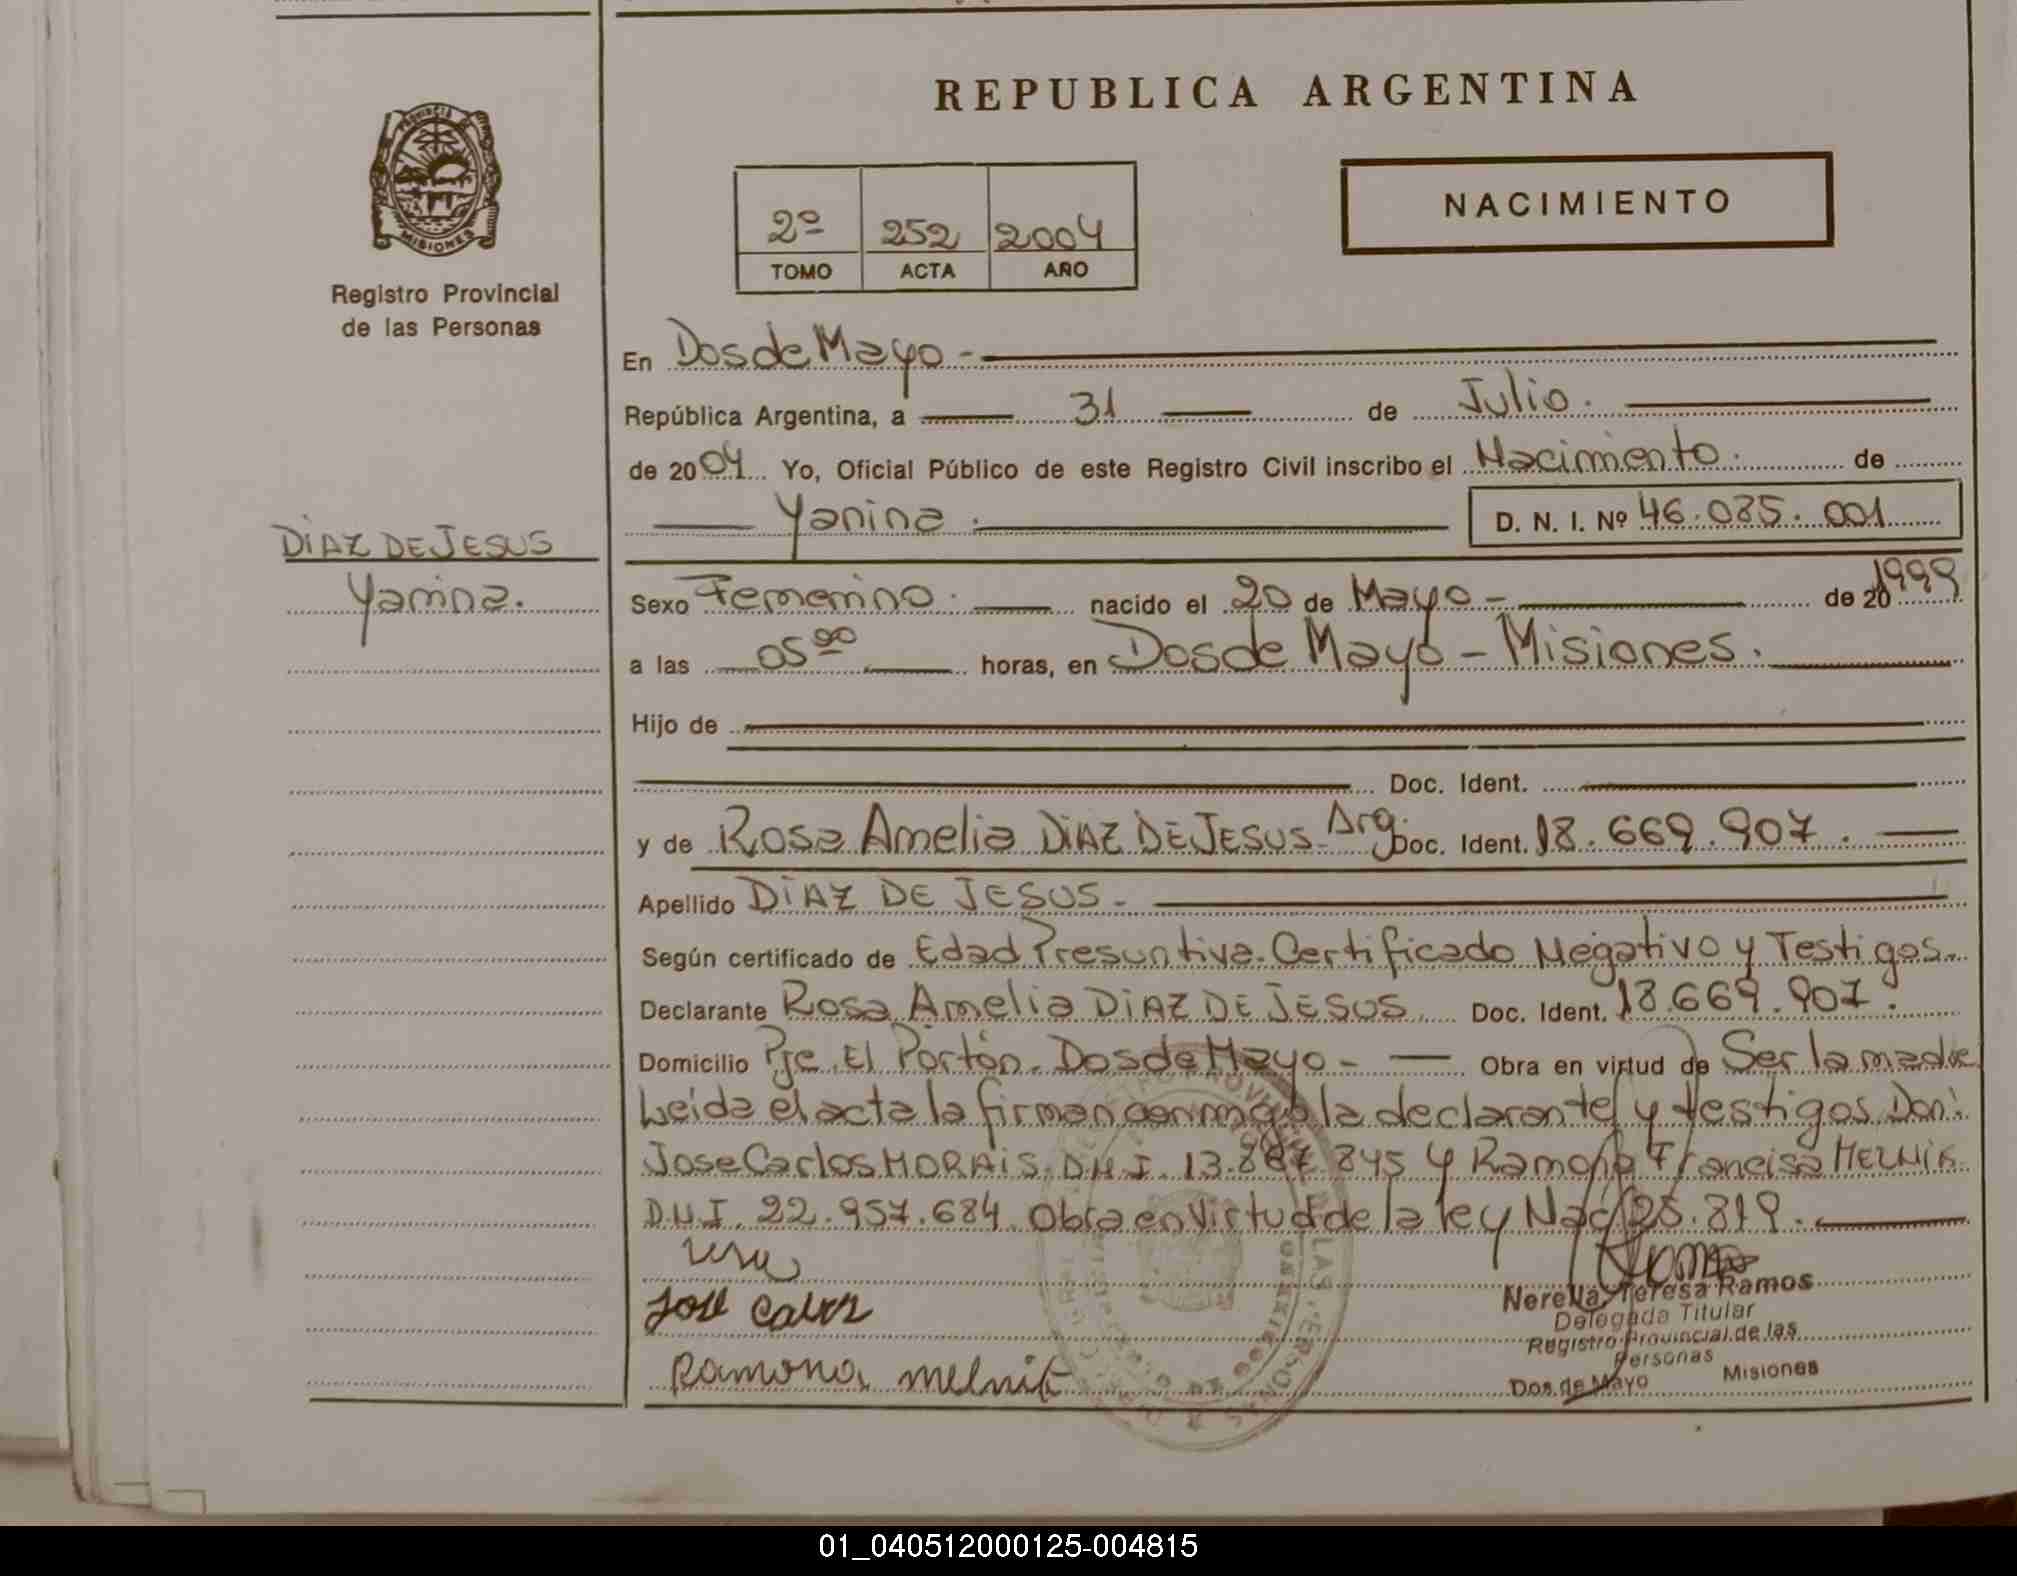 REPUBLICA ARGENTINA
PROVINCIA DE
MISIONES
Registro Provincial
de las Personas
2º 252 2004
TOMO ACTA AÑO
NACIMIENTO
En Dos de Mayo -
República Argentina, a 31 de Julio.
de 2004 Yo, Oficial Público de este Registro Civil inscribo el Nacimiento. de
Yanina. D. N. I. Nº 46.085.001
DiAZ DE JESUS
Yanina.
Sexo Femenino. nacido el 20 de Mayo - de 20 1999
a las 05 00 horas, en Dos de Mayo - Misiones.
Hijo de
Doc. Ident.
y de Rosa Amelia DiAZ DE JESUS - Arg. Doc. Ident. 18.669.907.
Apellido DiAZ DE JESUS.-
Según certificado de Edad Presuntiva. Certificado Negativo y Testigos.
Declarante Rosa Amelia DiAZ DE JESUS. Doc. Ident. 18.669.907.
Domicilio Pje. El Portón. Dos de Mayo - Obra en virtud de Ser la madre
Leida el acta la firman conmigo la declarante y testigos Don:
Jose Carlos MORAiS. D.N.I. 13.887.845 y Ramona Francisa MELNiK
D.N.I. 22.957.684. Obra en Virtud de la ley Nac 25.819.
José Carlos
Ramona melnik
Nerella Teresa Ramos
Delegada Titular
Registro Provincial de las
Personas
Dos de Mayo Misiones
01_040512000125-004815